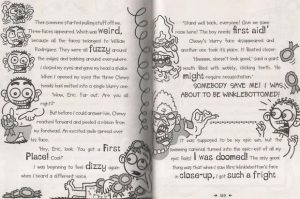 Then someone started pulling stuff off me.
Three faces appeared. Which was weird,
because all the faces belonged to William
Rodriguez. They were all fuzzy around
the edges and bobbing around everywhere.
I closed my eyes and gave my head a shake.
When I opened my eyes the three Chewy
heads had melted into a single blurry one.
"Wow, Eric. Far out. Are you all
right?"
But before I could answer him, Chewy
reached forward and peeled a ribbon from
my forehead. An excited smile spread over
his face.
"Hey, Eric, look. You got a First
Place! Cool!"
I was beginning to feel dizzy again
when I heard a different voice.
"Stand well back, everyone! Give me some
room here! The boy needs first aid!"
Chewy's blurry face disappeared and
another one took its place. It floated closer.
"Hmmmm, doesn't look good," said a giant
mouth filled with wobbly, clicking teeth. "He
might require resuscitation."
SOMEBODY SAVE ME! I WAS
ABOUT TO BE WINKLEBOTTOMED!
It was supposed to be my epic win, but the
swimming carnival turned into the epic-est of all my
epic fails! I was doomed! The only good
thing was that when I saw Mrs Winklebottom's face
in close-up, I got such a fright